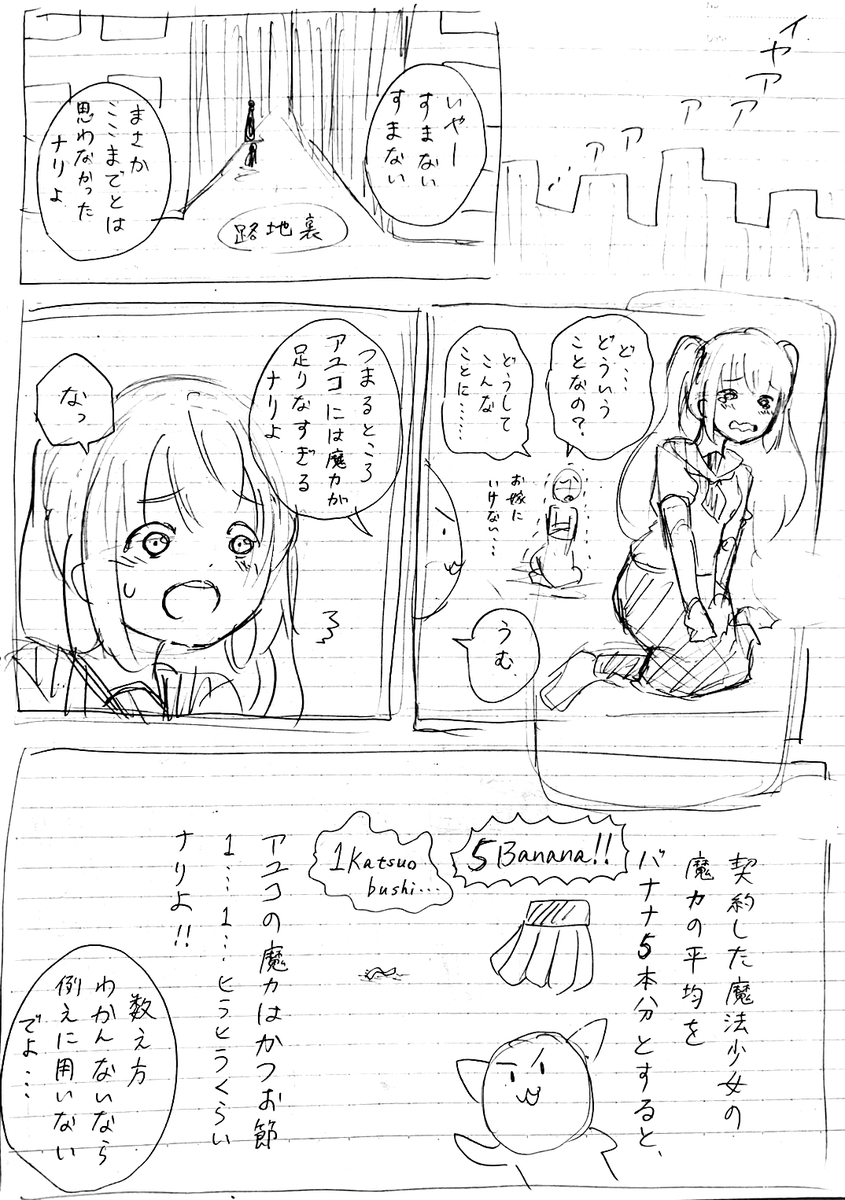 イヤアアアアア…
いやー
すまない
すまない
路地裏
まさか
ここまでとは
思わなかった
ナリよ
ど…
どういう
ことなの？
どうして
こんな
ことに……
お嫁に
いけない…
うむ
つまるところ
アユコには魔力が
足りなすぎる
ナリよ
なっ
契約した魔法少女の
魔力の平均を
バナナ5本分とすると、
5Banana!!
1Katsuo
bushi…
アユコの魔力はかつお節
1…1…ヒラヒラくらい
ナリよ!!
数え方
わかんないなら
例えに用いない
でよ…